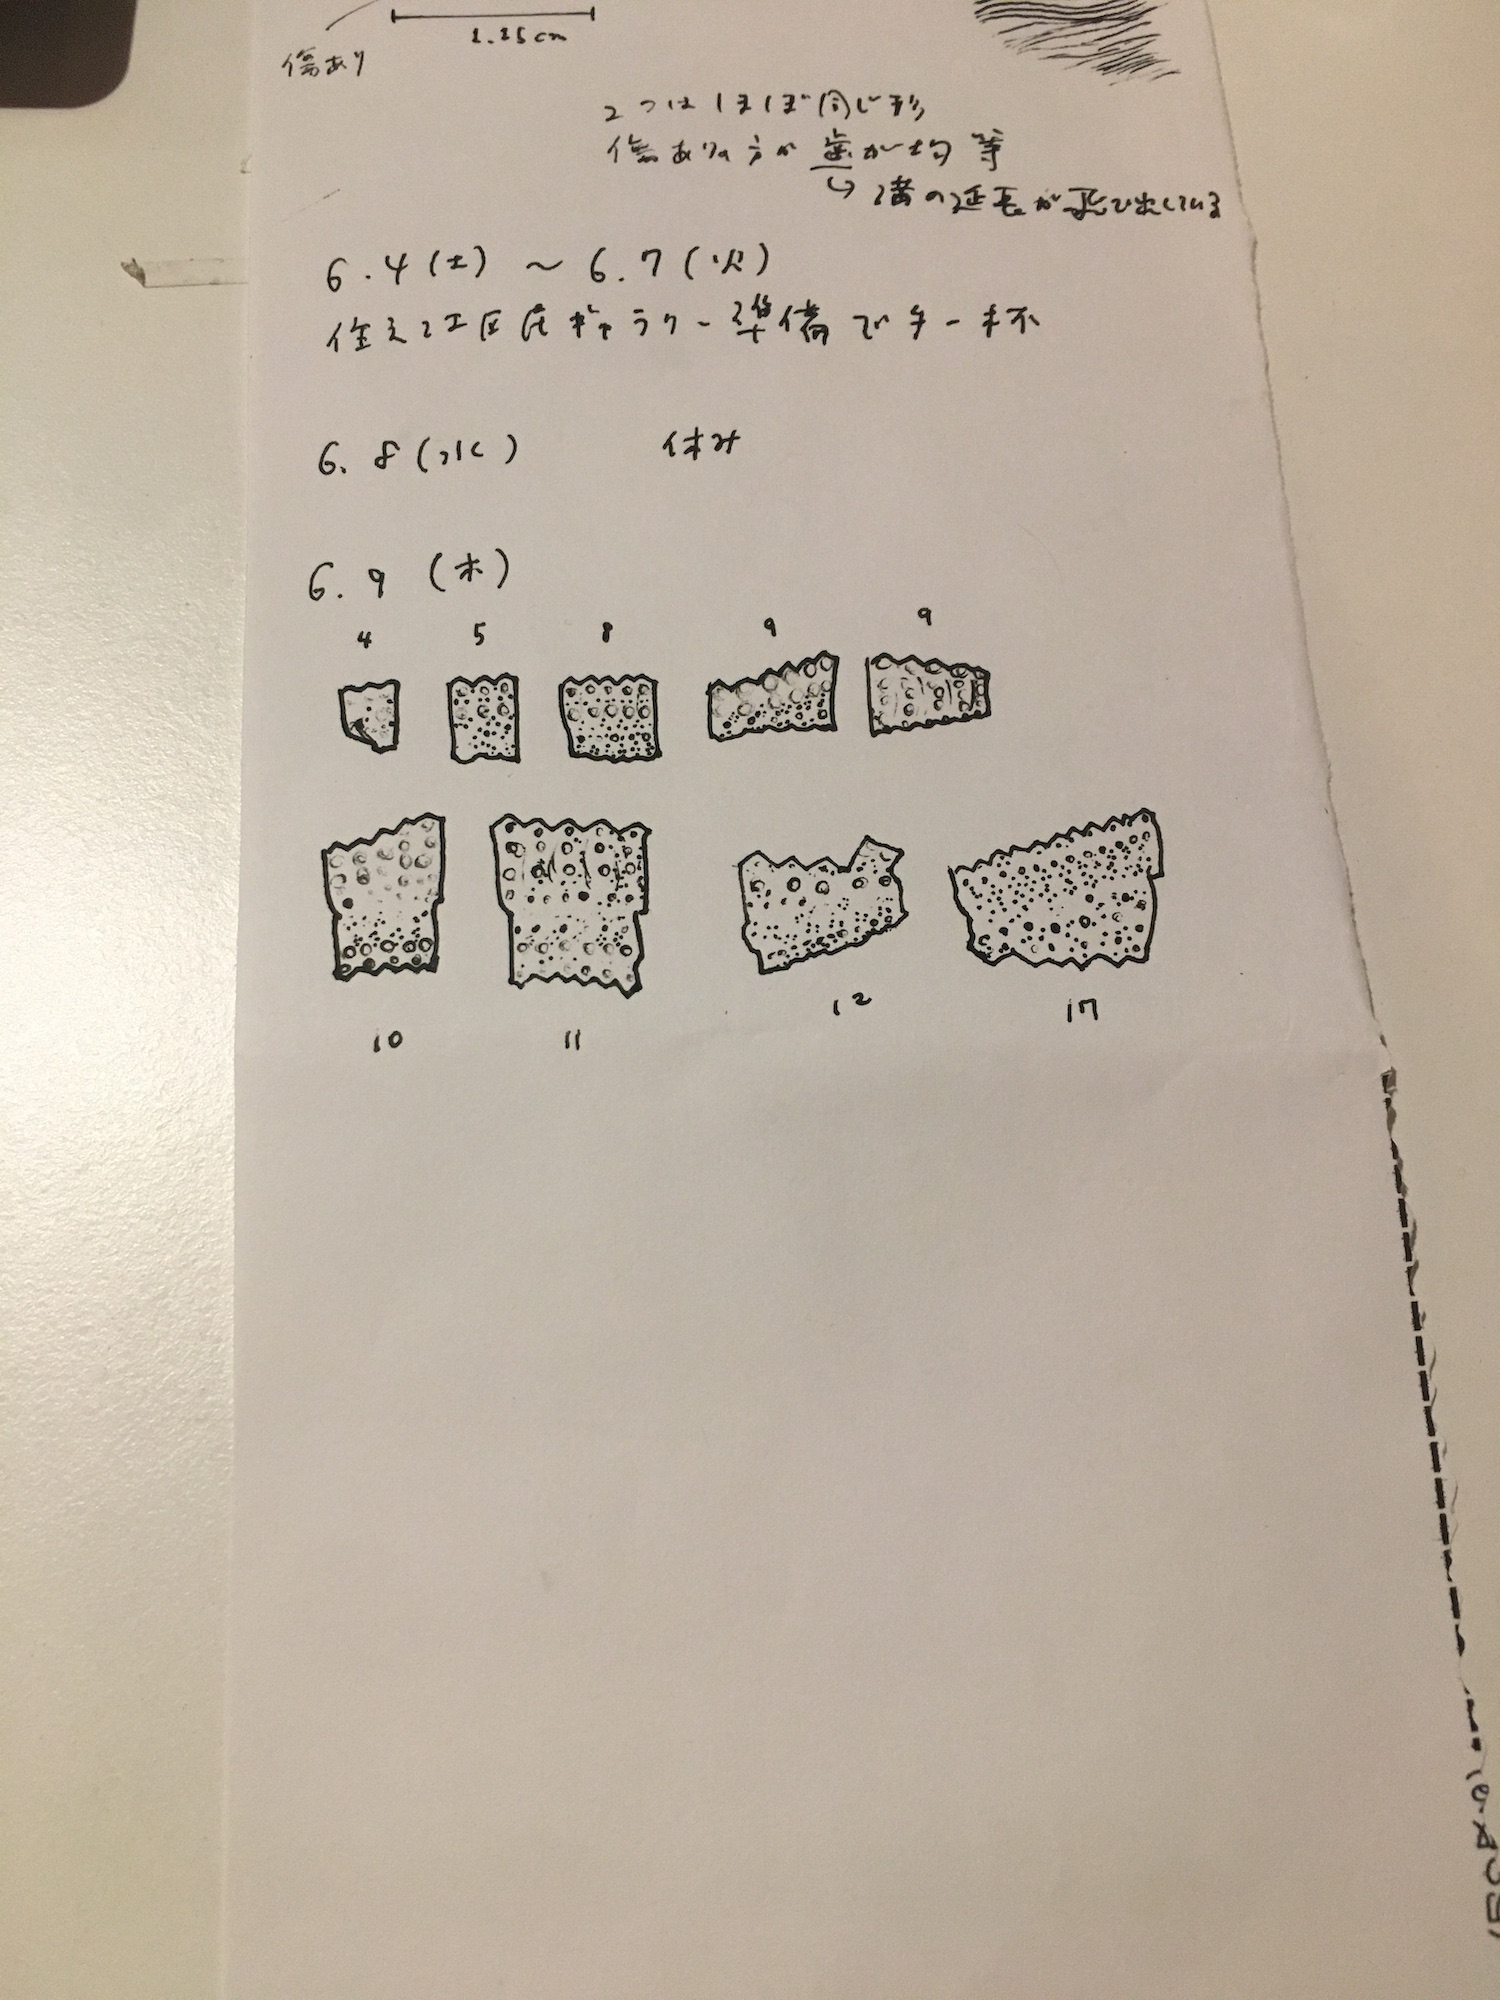 1.25cm
傷あり
2つはほぼ同じ形
傷ありの方が歯が均等
↳ 溝の延長が飛び出している
6.4(土) 〜 6.7(火)
区民ギャラリー準備で手一杯
6.8(水) 休み
6.9(木)
4 5 8 9 9
10 11 12 17